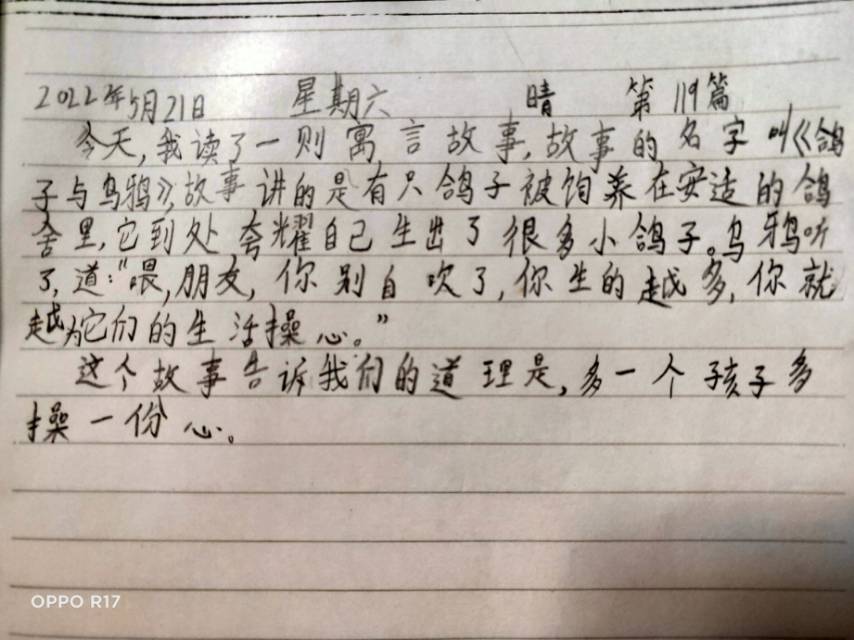 2022年5月21日 星期六 晴 第119篇
今天,我读了一则寓言故事,故事的名字叫《鸽
子与乌鸦》,故事讲的是有只鸽子被饲养在安适的鸽
舍里,它到处夸耀自己生出了很多小鸽子。乌鸦听
了,道:“喂,朋友,你别自吹了,你生的越多,你就
越为它们的生活操心。”
这个故事告诉我们的道理是,多一个孩子多
操一份心。
OPPO R17